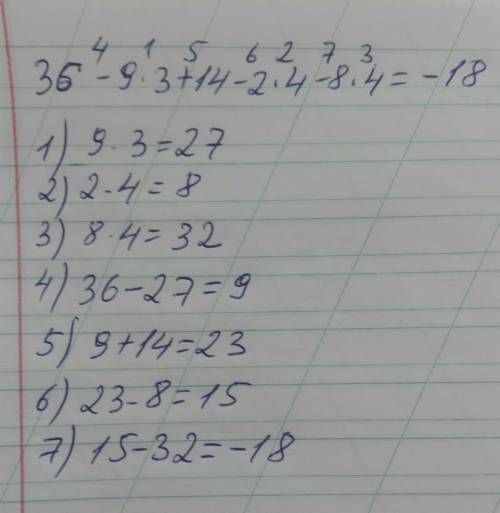 4 1 5 6 2 7 3
36 - 9 · 3 + 14 - 2 · 4 - 8 · 4 = -18
1) 9 · 3 = 27
2) 2 · 4 = 8
3) 8 · 4 = 32
4) 36 - 27 = 9
5) 9 + 14 = 23
6) 23 - 8 = 15
7) 15 - 32 = -18